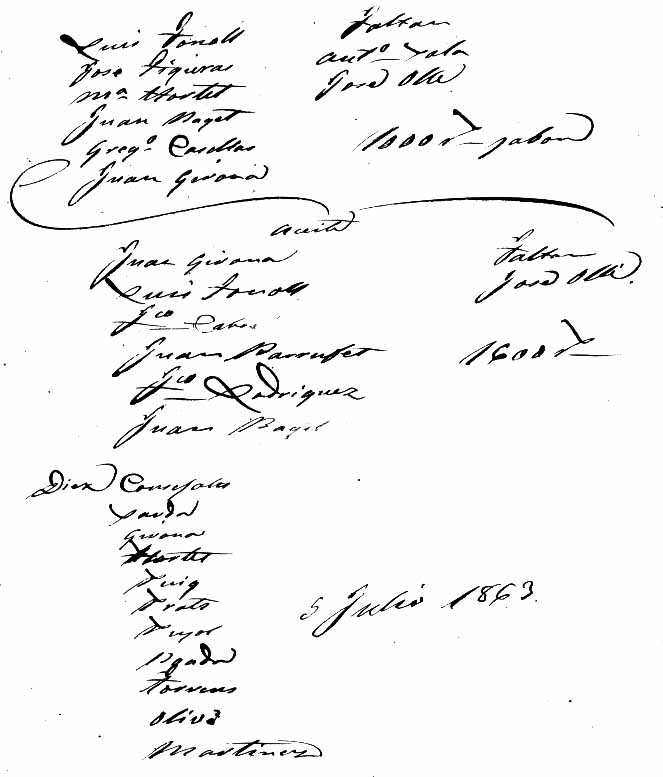 Luis Fonoll
José Figueras
Mª Hortet
Juan Baget
Gregº Casellas
Juan Girona
Faltan
Antº Sala
José Ollé
1000 rˢ jabon
Aceite
Juan Girona
Luis Fonoll
Fco
Juan Barrufet
Fco Rodriguez
Juan Baget
Faltan
José Ollé.
1600 rˢ
Diez Concejales
Sardá
Girona
Hortet
Puig
Prats
Pujol
Torrens
Olivé
Martinez
5 Julio 1863.